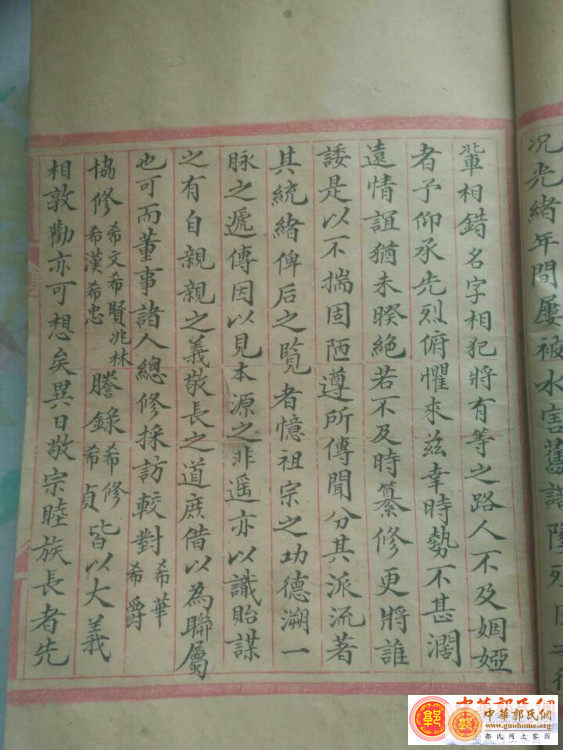 况光緒年間屢被水害舊譜
輩相錯名字相犯將有等之路人不及姻婭
者予仰承先烈俯懼來茲幸時勢不甚濶
遠情誼猶未暌絕若不及時纂修更將誰
諉是以不揣固陋遵所傳聞分其派流著
其統緒俾后之覧者憶祖宗之功德溯一
脉之遞傳因以見本源之非遥亦以識貽謀
之有自親親之義敬長之道庶借以為聯屬
也可而董事諸人總修採訪較對希華希爵
協修希文希賢兆林希漢希忠謄錄希修希貞皆以大義
相敦勸亦可想矣異日敬宗睦族長者先
中華郭氏網
www.guohome.org
郭氏网上家园